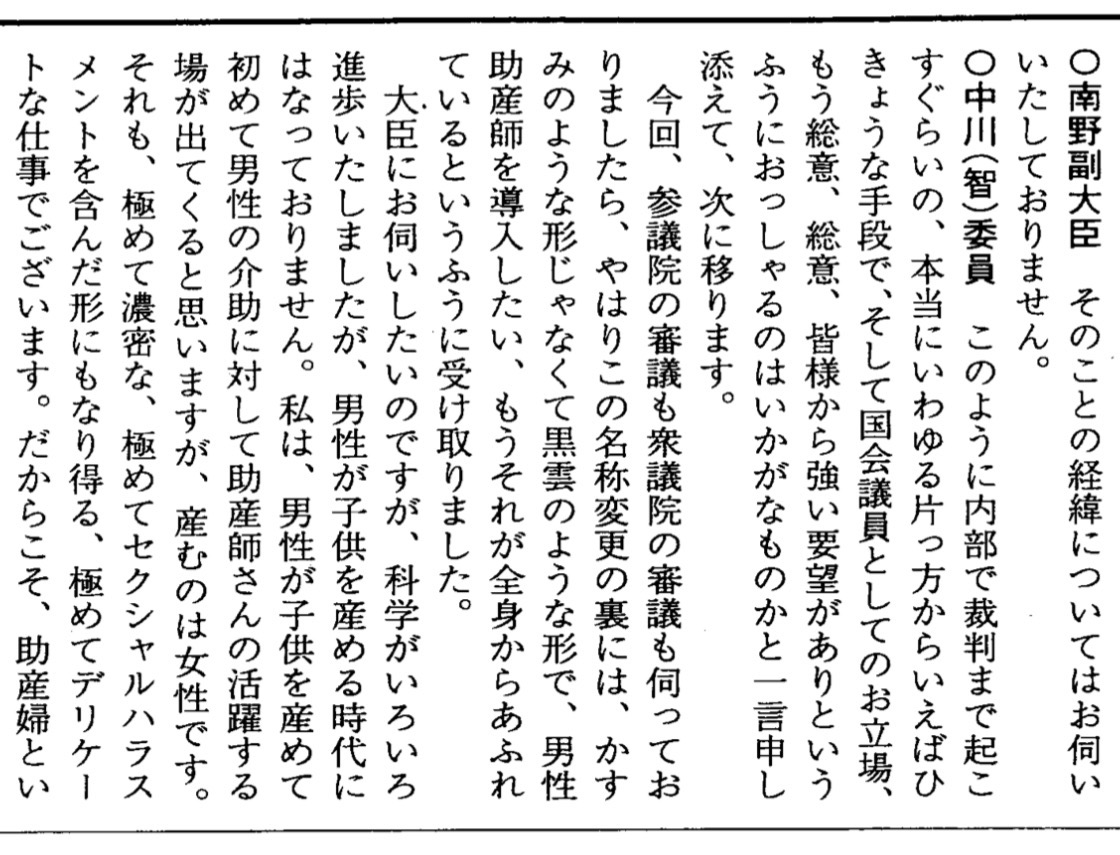 ○南野副大臣　そのことの経緯についてはお伺い
いたしておりません。
○中川（智）委員　このように内部で裁判まで起こ
すぐらいの、本当にいわゆる片っ方からいえばひ
きょうな手段で、そして国会議員としてのお立場、
もう総意、総意、皆様から強い要望がありという
ふうにおっしゃるのはいかがなものかと一言申し
添えて、次に移ります。
　今回、参議院の審議も衆議院の審議も伺ってお
りましたら、やはりこの名称変更の裏には、かす
みのような形じゃなくて黒雲のような形で、男性
助産師を導入したい、もうそれが全身からあふれ
ているというふうに受け取りました。
　大臣にお伺いしたいのですが、科学がいろいろ
進歩いたしましたが、男性が子供を産める時代に
はなっておりません。私は、男性が子供を産めて
初めて男性の介助に対して助産師さんの活躍する
場が出てくると思いますが、産むのは女性です。
それも、極めて濃密な、極めてセクシャルハラス
メントを含んだ形にもなり得る、極めてデリケー
トな仕事でございます。だからこそ、助産婦とい